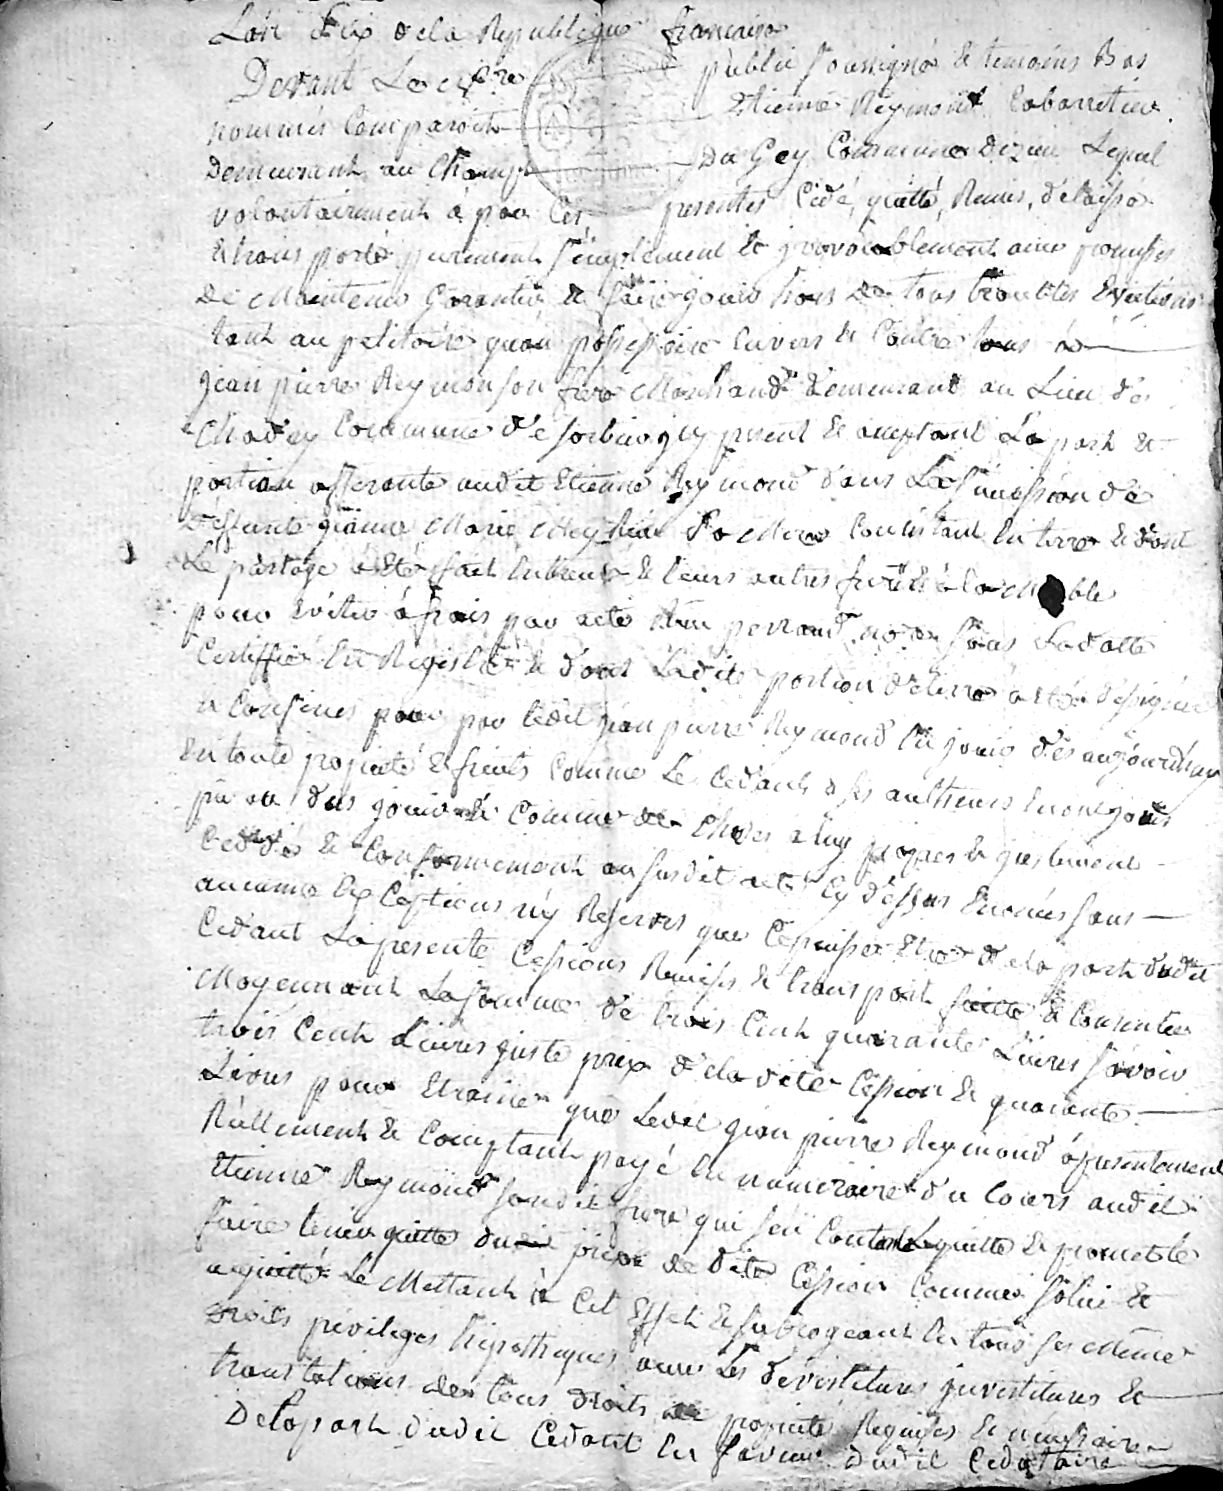 L'an dix de la Republique francaise
Devant Le public soussigné & temoins Bas
nommés Comparoit Etienne Reymond Cabarretier
Demeurant au Champ Du Gey Commune Dizieu Lequel
volontairement á par Ces presentes Cédé, quitté, Remis, délaissé
& transporté purement simplement & irrevocablement avec promesses
De Maintenir Garantir & faire jouir de tous troubles Evictions
tant au petitoire quau possessoire Envers & Contre tous à
jean pierre Reymon son frere Marchand demeurant au Lieu de
Commune de present & acceptant La part &
portion afferante audit Etienne Reymond dans La Succession de
Deffunte Marie Sa Mere Consistant En terre & dont
Le partage a Eté fait Entreux & leurs autres
pour Eviter á frais par acte ferrand sous La datte
Certiffié En Registré & dont Ladite portion de terre a Eté designée
& Confinés pour par Ledit jean pierre Reymond En jouir dès aujourdhuy
En toute proprieté & fruits Comme Le Cedant & ses autheurs En ont jouis
pu ou dus jouir & Comme de Choses a luy propres & justement
Ceddés & Conformement au susdit acte Cy dessus Enoncés sans
aucune Exceptions ny Reserves que Ce puisse Etre de la part dudit
Cedant La presente Cessions Remises & transport faitte & Consentie
Moyennant La somme de trois Cent quarante Livres Savoir
trois Cent Livres juste prix de la dite Cession & quarante
Livres pour Etraine que Ledit jean pierre Reymond á presentement
Réellement & Comptant payé En numeraire du Cours audit
Etienne Reymond son dit frere qui sen Contante quitte & promet le
faire tenir quitte du prix de dite Cession Comme solu &
aquitté Le Mettant à Cet Effet & subrogeant En tous ses Meme
droits privileges hipotheques avec Les devestitures investitures &
translations de tous droits de proprieté Requises & necessaire
De la part dudit Cedant En faveur dudit Cedataire